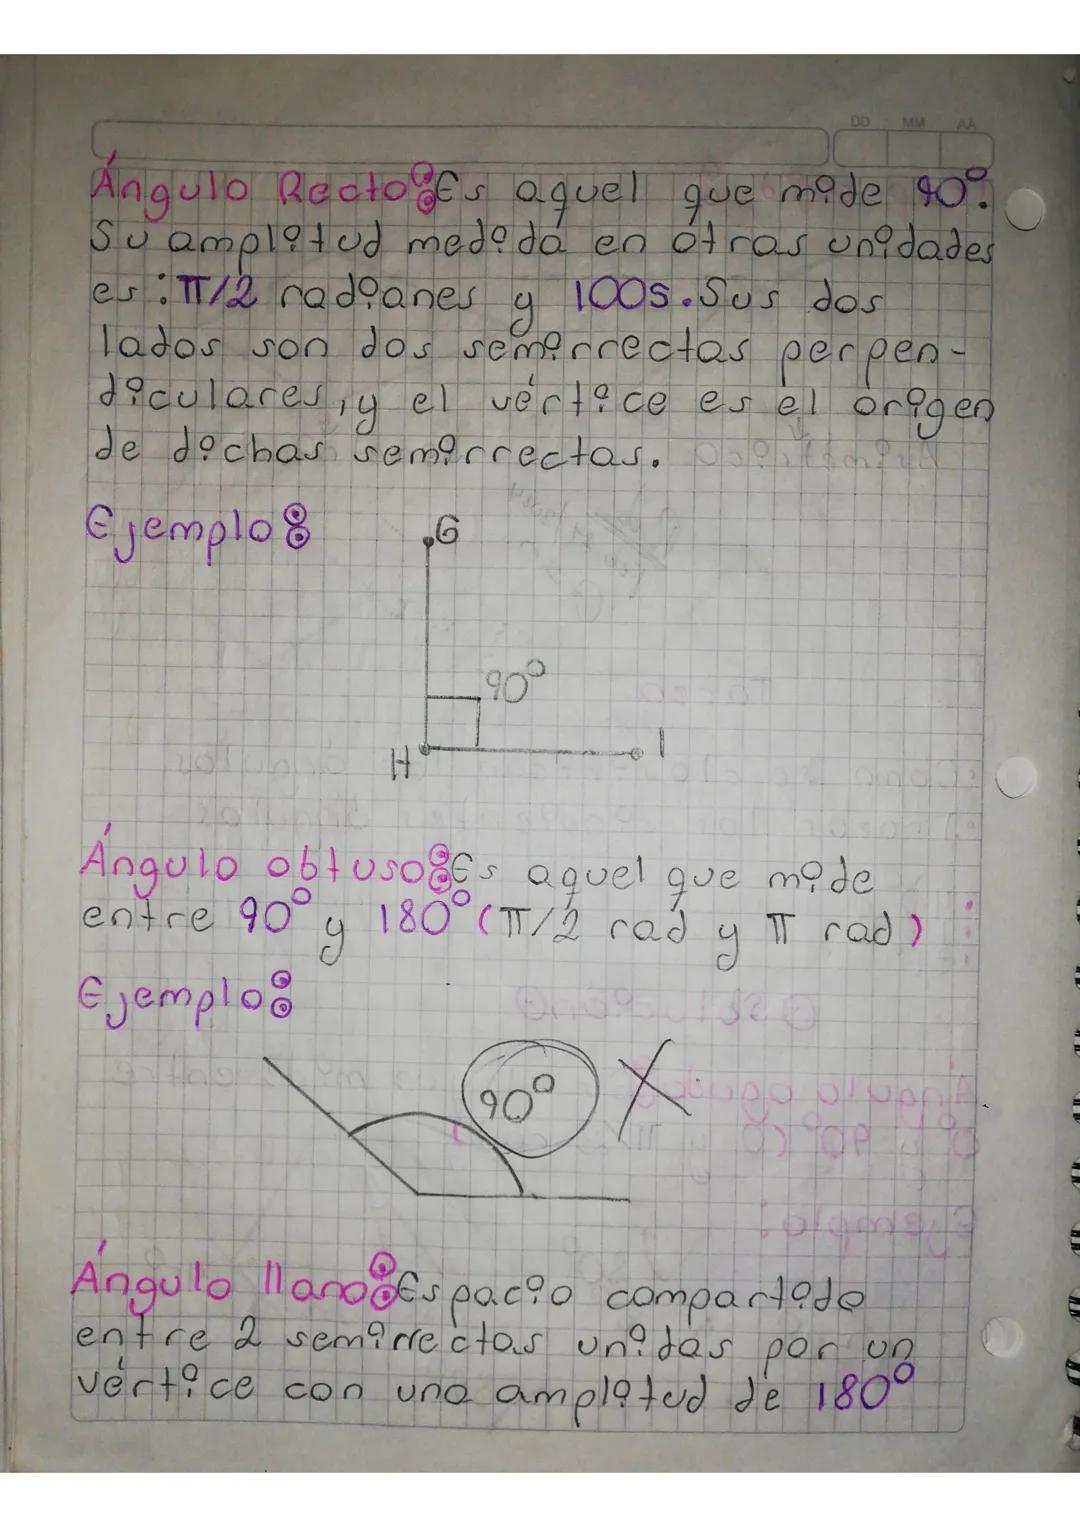 DD MM AA
Ángulo Recto: Es aquel que mide 90°.
Su amplitud medida en otras unidades
es: π/2 radianes y 100s. Sus dos
lados son dos semirrectas perpen-
diculares, y el vértice es el origen
de dichas semirrectas.
Ejemplo:
G
90°
H I
Ángulo obtuso: Es aquel que mide
entre 90° y 180° (π/2 rad y π rad)
Ejemplo:
90° X
Ángulo llano: Espacio compartido
entre 2 semirrectas unidas por un
vértice con una amplitud de 180°